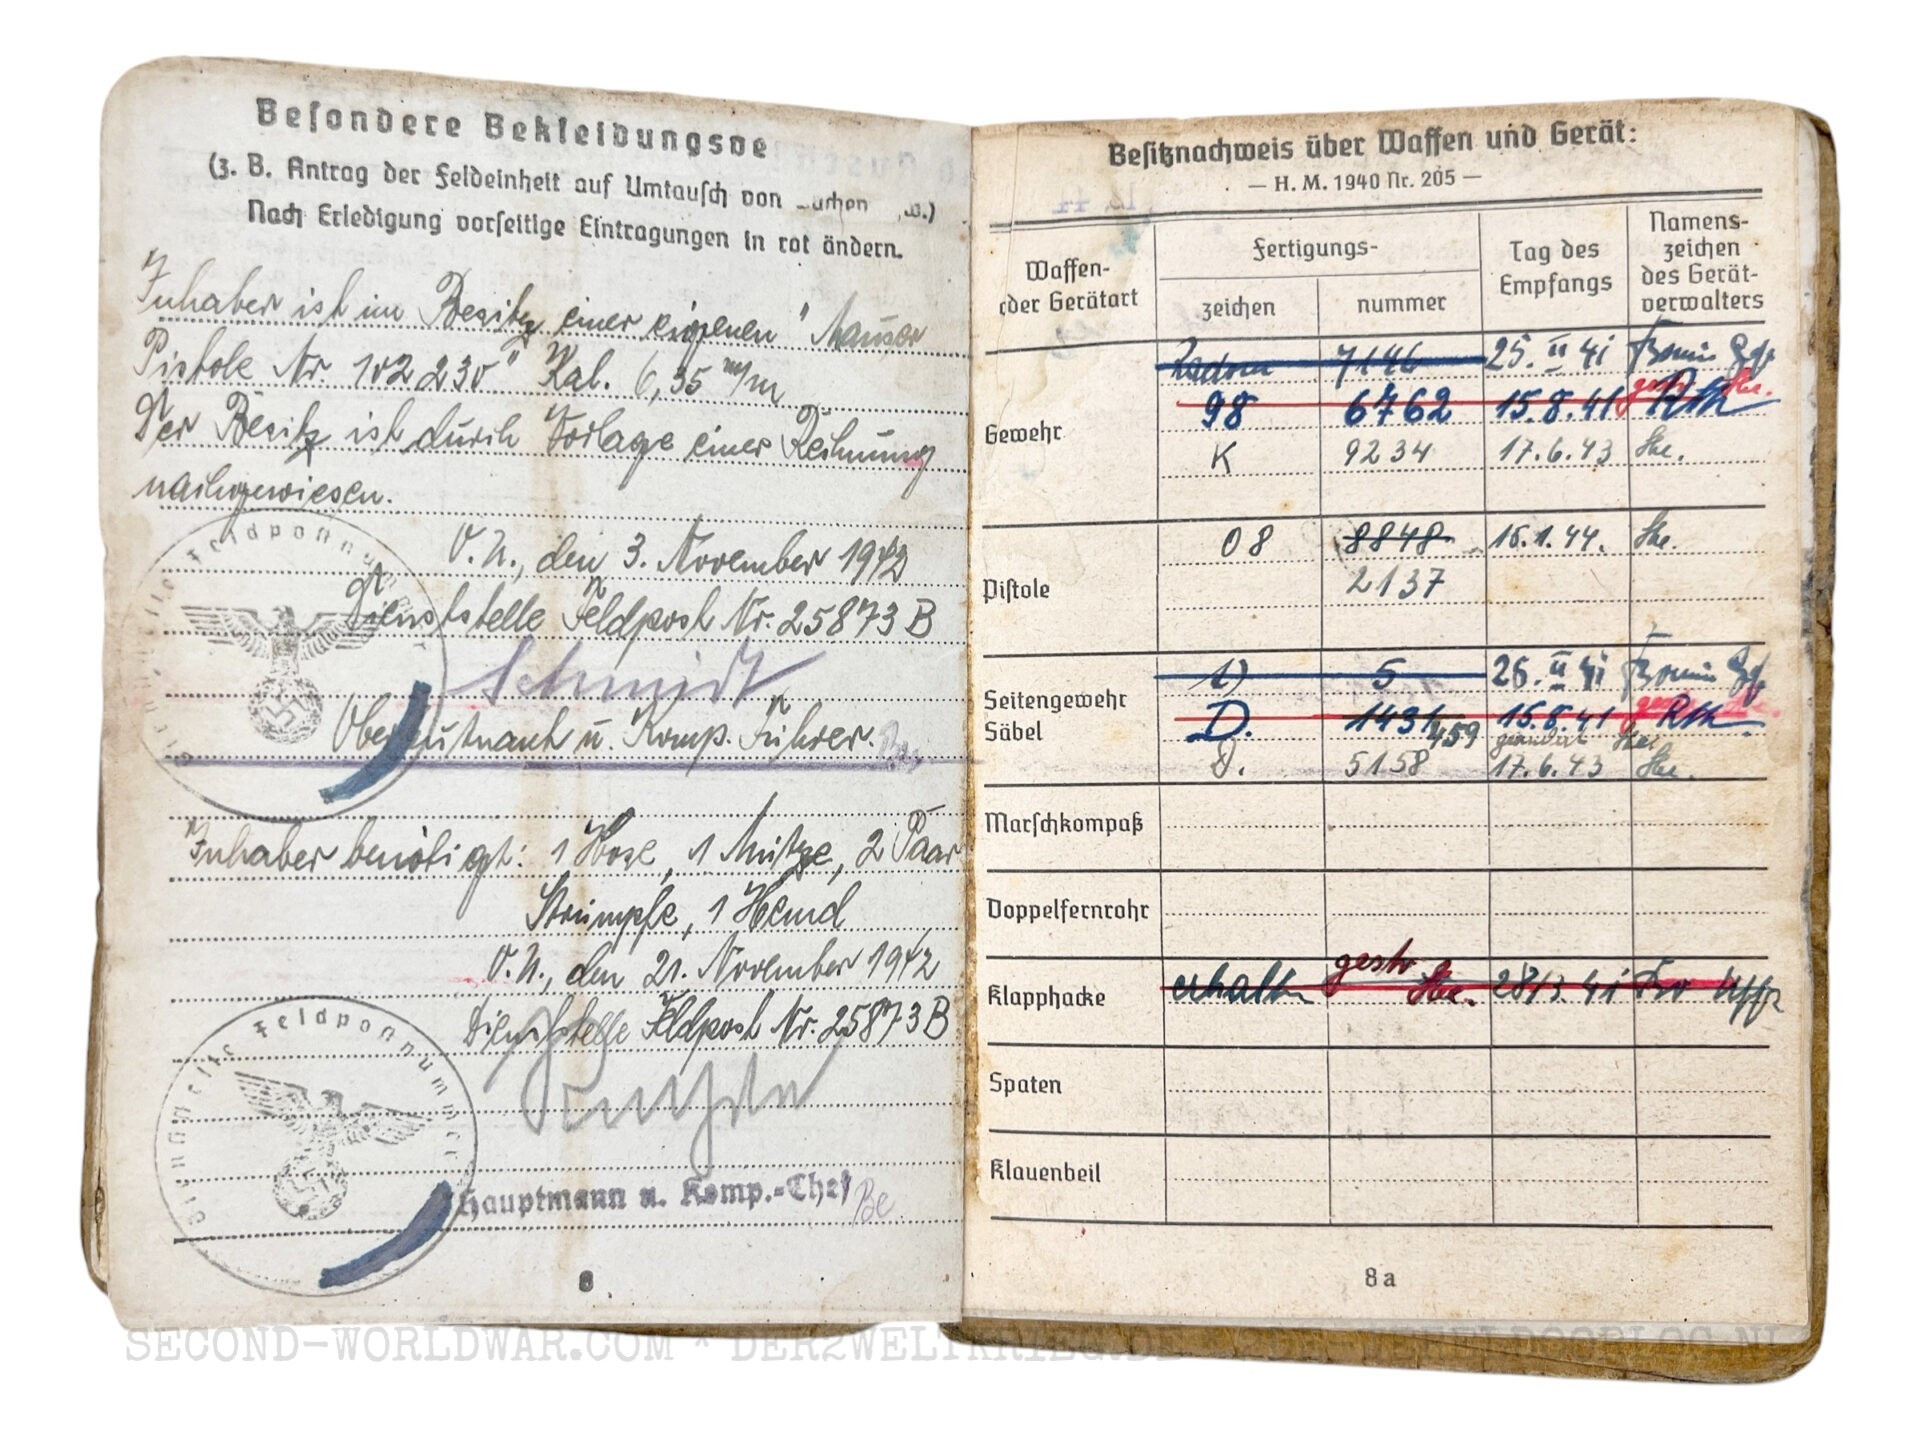 Besondere Bekleidungsve
(z. B. Antrag der Feldeinheit auf Umtausch von
Nach Erledigung vorseitige Eintragungen in rot ändern.
Inhaber ist im Besitz einer eigenen "Mauser
Pistole Nr. 102 230" Kal. 6,35 m/m
Der Besitz ist durch Vorlage einer Rechnung
nachgewiesen.
O.U., den 3. November 1942
Dienststelle Feldpost Nr. 25873 B
Schmidt
Oberleutnant u. Komp. Führer.
Inhaber benötigt: 1 Hose, 1 Mütze, 2 Paar
Strümpfe, 1 Hemd
O.U., den 21. November 1942
Dienststelle Feldpost Nr. 25873 B
Hauptmann u. Komp.-Chef Be
Dienststelle Feldpostnummer
Dienststelle Feldpostnummer
8
Besitznachweis über Waffen und Gerät:
— H. M. 1940 Nr. 205 —
Waffen- oder Gerätart
Fertigungs-
zeichen nummer
Tag des Empfangs
Namens- zeichen des Gerät- verwalters
7146 25. II 41
Gewehr 98 6762 15.8.41 Rth
K 9234 17.6.43 Ske.
Pistole 08 8848 16.1.44. Ske.
2137
Seitengewehr D 5 26. II 41
Säbel D. 1431 459 15.8.41 Rth.
geändert Ske.
D. 5158 17.6.43 Ske.
Marschkompaß
Doppelfernrohr
Klapphacke erhalten gestr Ske. 28/3. 41 Uffz
Spaten
Klauenbeil
8a
SECOND-WORLDWAR.COM * DER2WELTKRIEG.DE